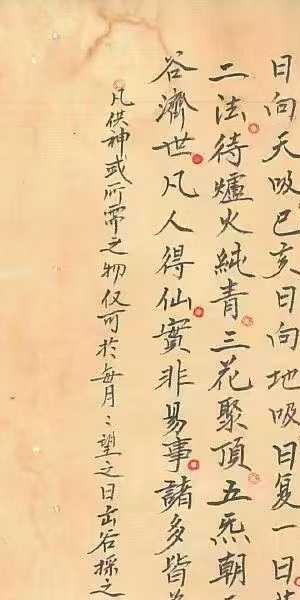 日向天吸巳亥日向地吸日复一日
二法待爐火純青三花聚頂五炁朝
谷濟世凡人得仙實非易事諸多皆
凡供神或所需之物仅可於每月〻望之日出谷採之